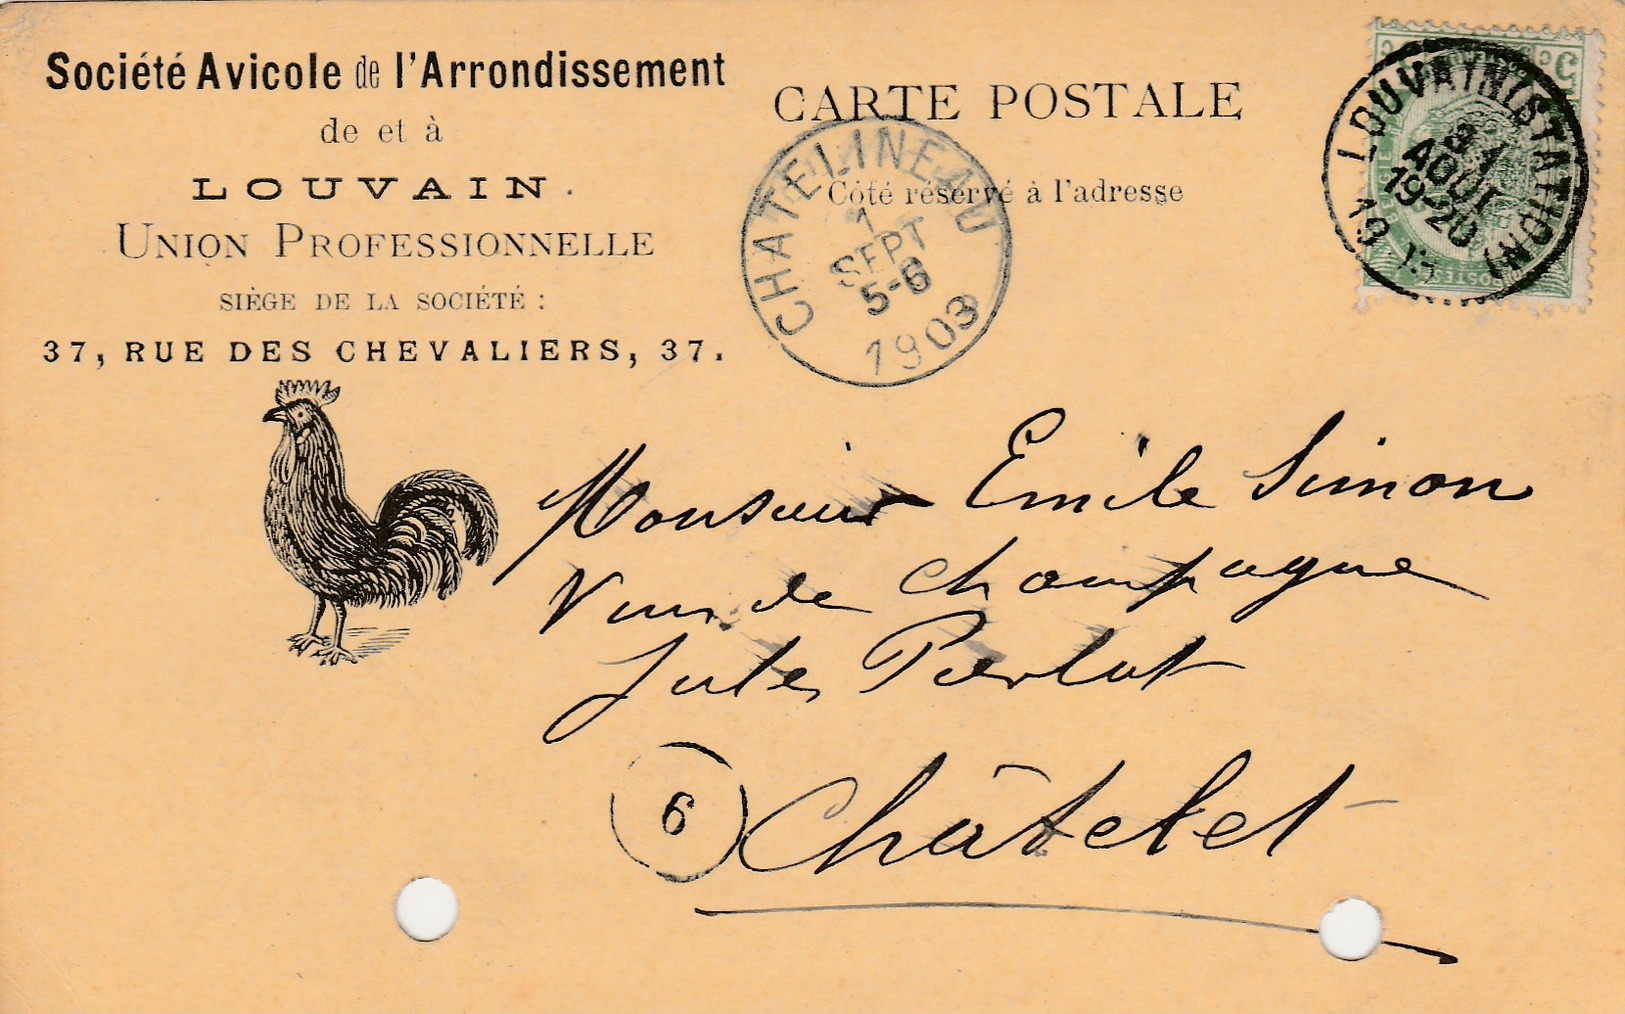 Société Avicole de l'Arrondissement
de et à
LOUVAIN.
UNION PROFESSIONNELLE
SIÈGE DE LA SOCIÉTÉ :
37, RUE DES CHEVALIERS, 37.
CARTE POSTALE
Côté réservé à l'adresse
CHATELINEAU
1
SEPT
5-6
1903
LOUVAIN (STATION)
31
AOUT
19-20
19
Monsieur Emile Simon
de Champagne
Jules Pierlot
6
Châtelet